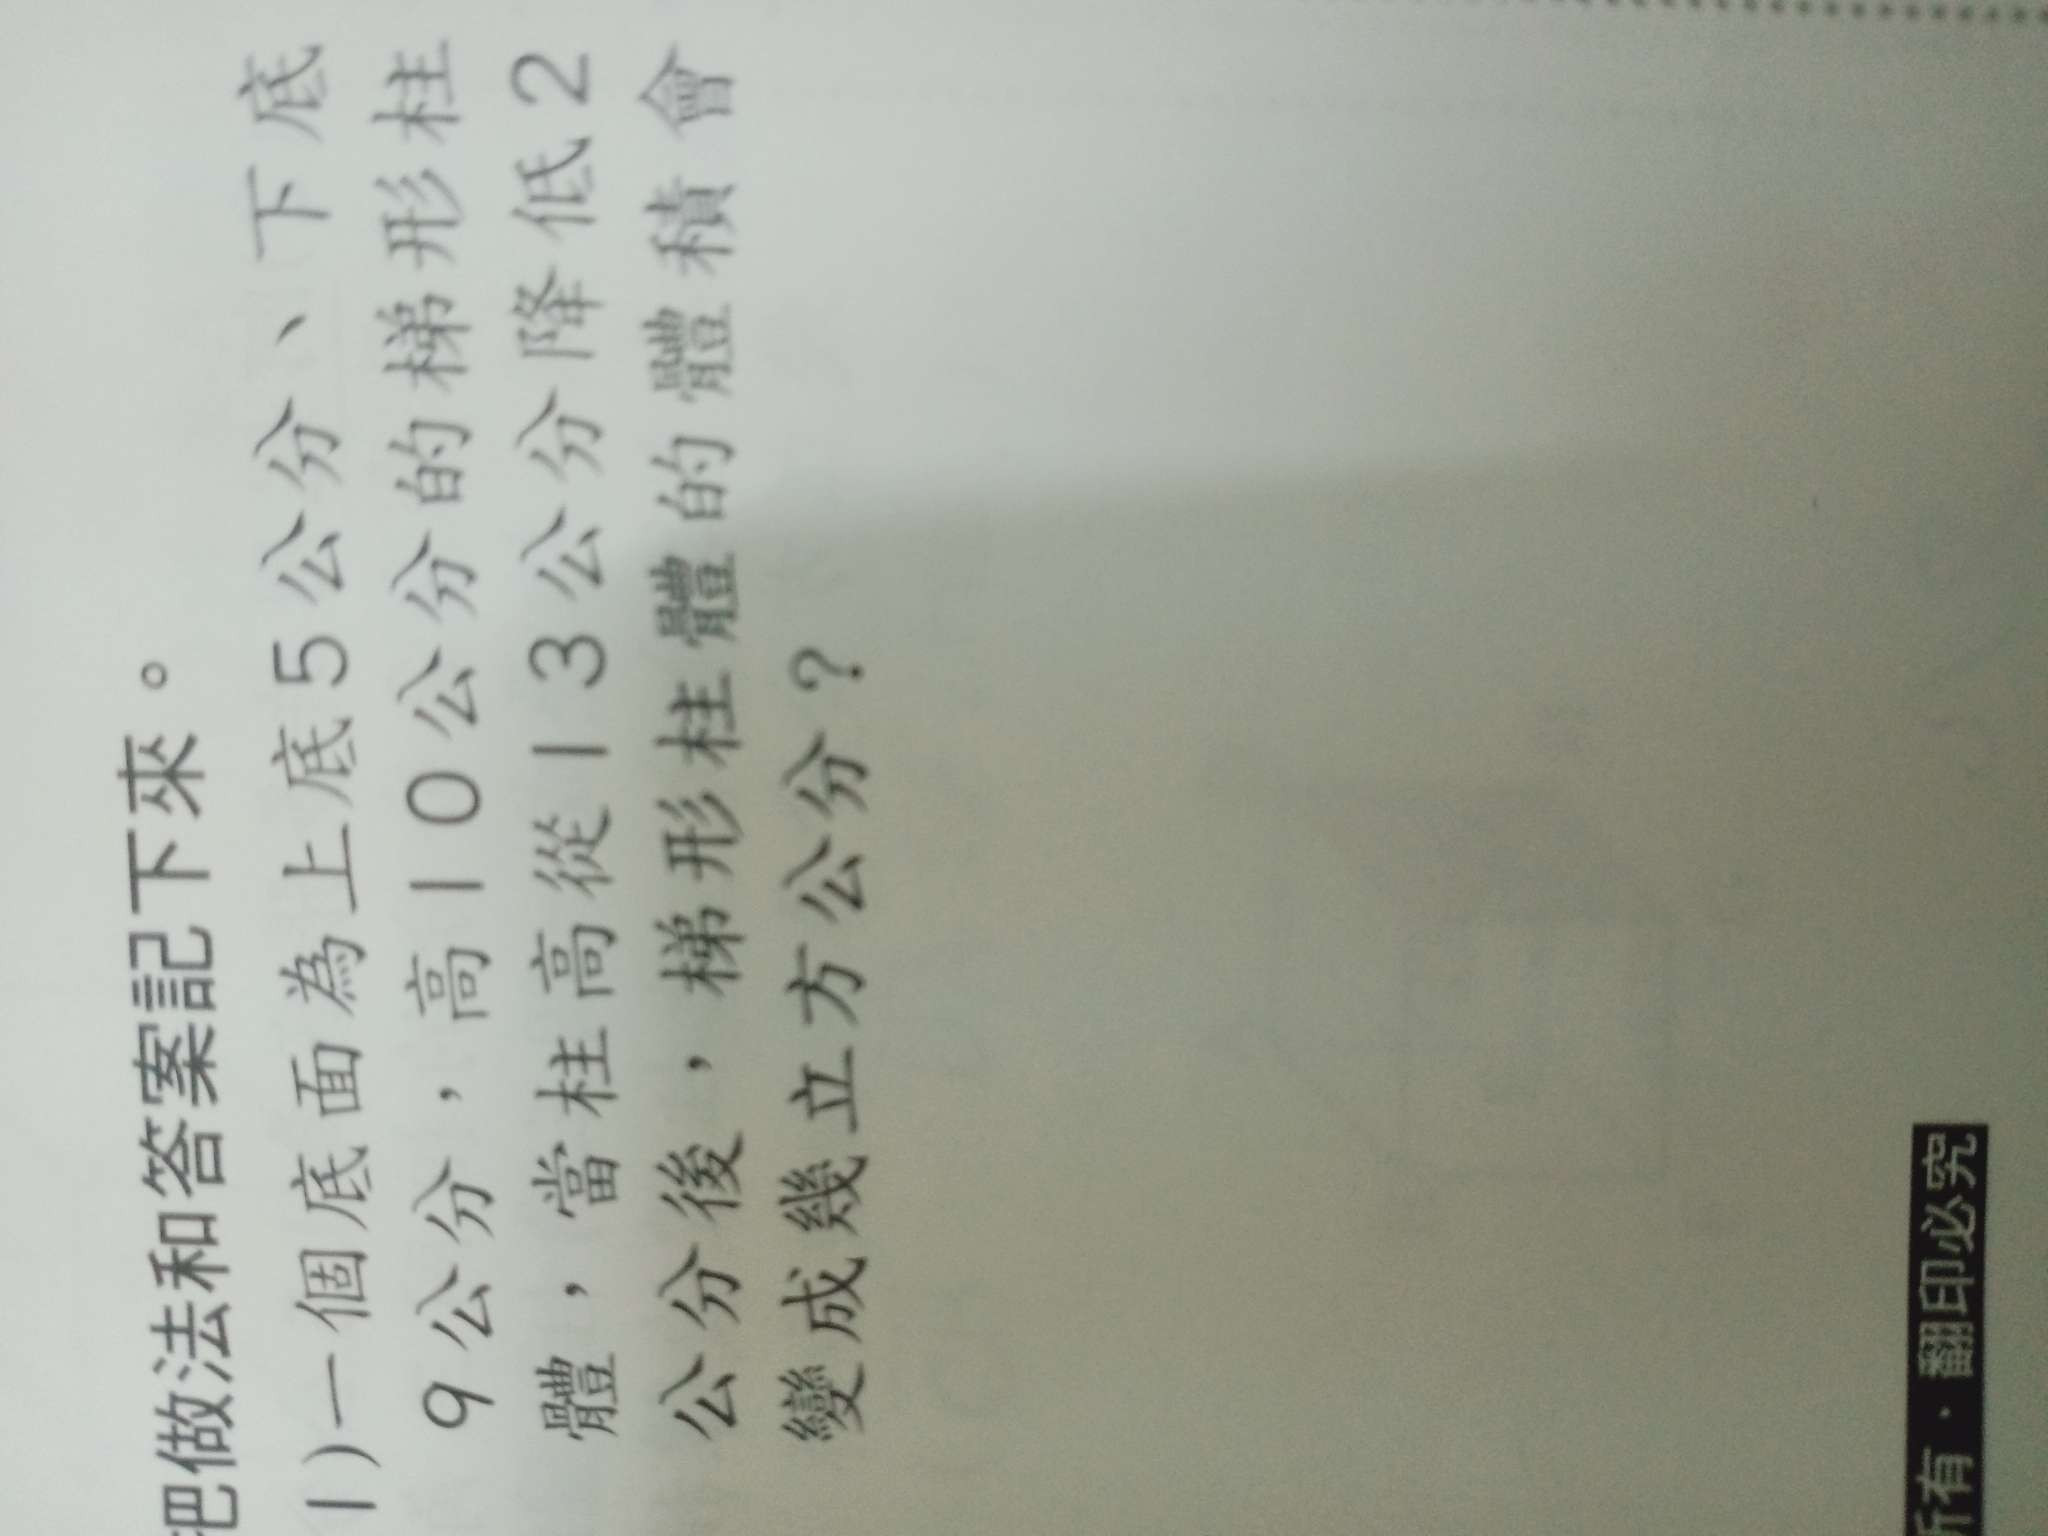 把做法和答案記下來。
1)一個底面為上底5公分、下底
9公分，高10公分的梯形柱
體，當柱高從13公分降低2
公分後，梯形柱體的體積會
變成幾立方公分？
所有·翻印必究